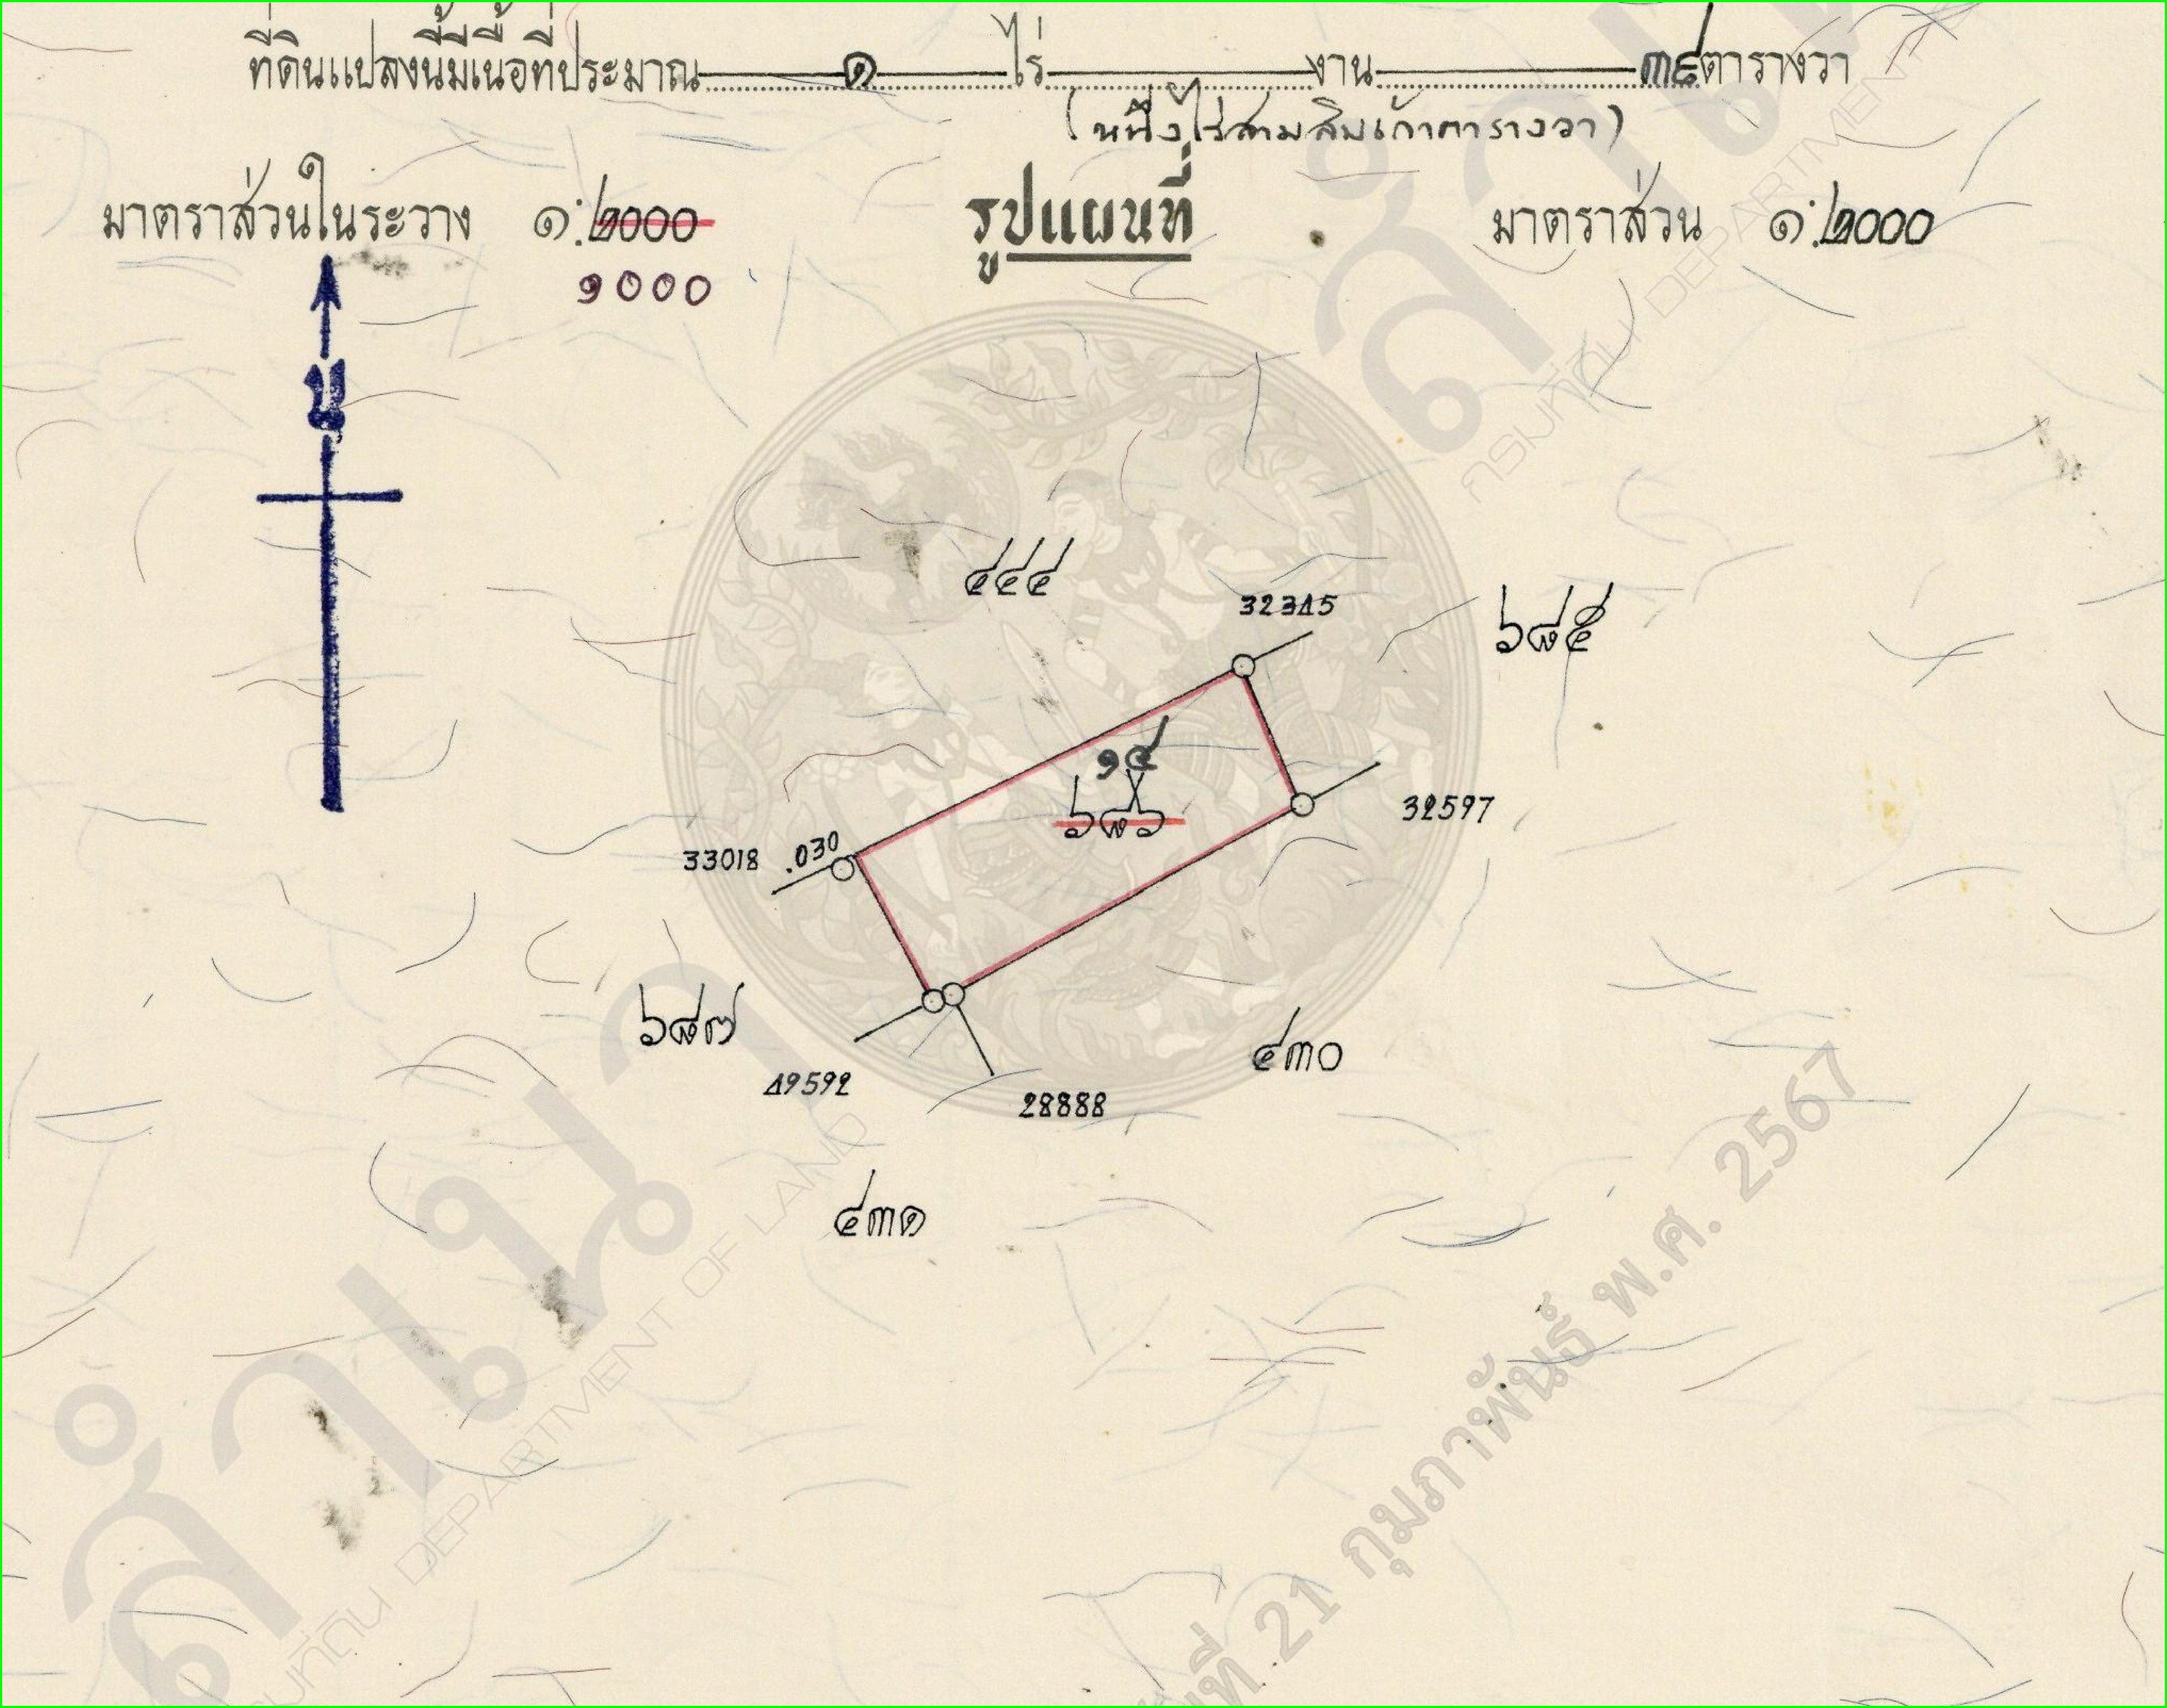 ที่ดินแปลงนี้มีเนื้อที่ประมาณ ๑ ไร่ งาน ๓๙ ตารางวา
(หนึ่งไร่สามสิบเก้าตารางวา)
มาตราส่วนในระวาง ๑:๒๐๐๐ รูปแผนที่ มาตราส่วน ๑:๒๐๐๐
๑๐๐๐
นู
๔๔๔
32345
๖๘๕
๑๔
๖๘๖
32597
33018 .030
๖๘๗
๔๓๐
49592
28888
๔๓๑
สำเนา
กรมที่ดิน DEPARTMENT OF LAND
วันที่ 21 กุมภาพันธ์ พ.ศ. 2567